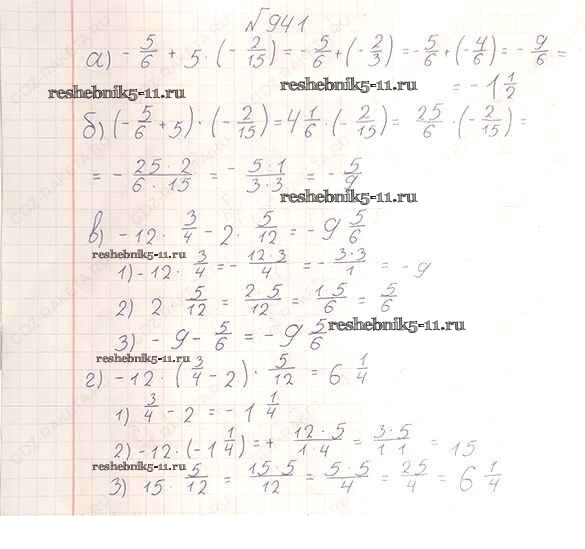 №941
а) - 5/6 + 5 · (- 2/15) = - 5/6 + (- 2/3) = - 5/6 + (- 4/6) = - 9/6 =
reshebnik5-11.ru reshebnik5-11.ru = - 1 1/2
б) (- 5/6 + 5) · (- 2/15) = 4 1/6 · (- 2/15) = 25/6 · (- 2/15) =
= - 25 · 2/6 · 15 = - 5 · 1/3 · 3 = - 5/9
reshebnik5-11.ru
в) - 12 · 3/4 - 2 · 5/12 = - 9 5/6
reshebnik5-11.ru
1) - 12 · 3/4 = - 12 · 3/4 = - 3 · 3/1 = - 9
2) 2 · 5/12 = 2 5/12 = 1 5/6 = 5/6
3) - 9 - 5/6 = - 9 5/6 reshebnik5-11.ru
reshebnik5-11.ru
г) - 12 · (3/4 - 2) · 5/12 = 6 1/4
1) 3/4 - 2 = - 1 1/4
2) - 12 · (- 1 1/4) = + 12 · 5/1 · 4 = 3 · 5/1 1 = 15
reshebnik5-11.ru
3) 15 · 5/12 = 15 · 5/12 = 5 · 5/4 = 25/4 = 6 1/4